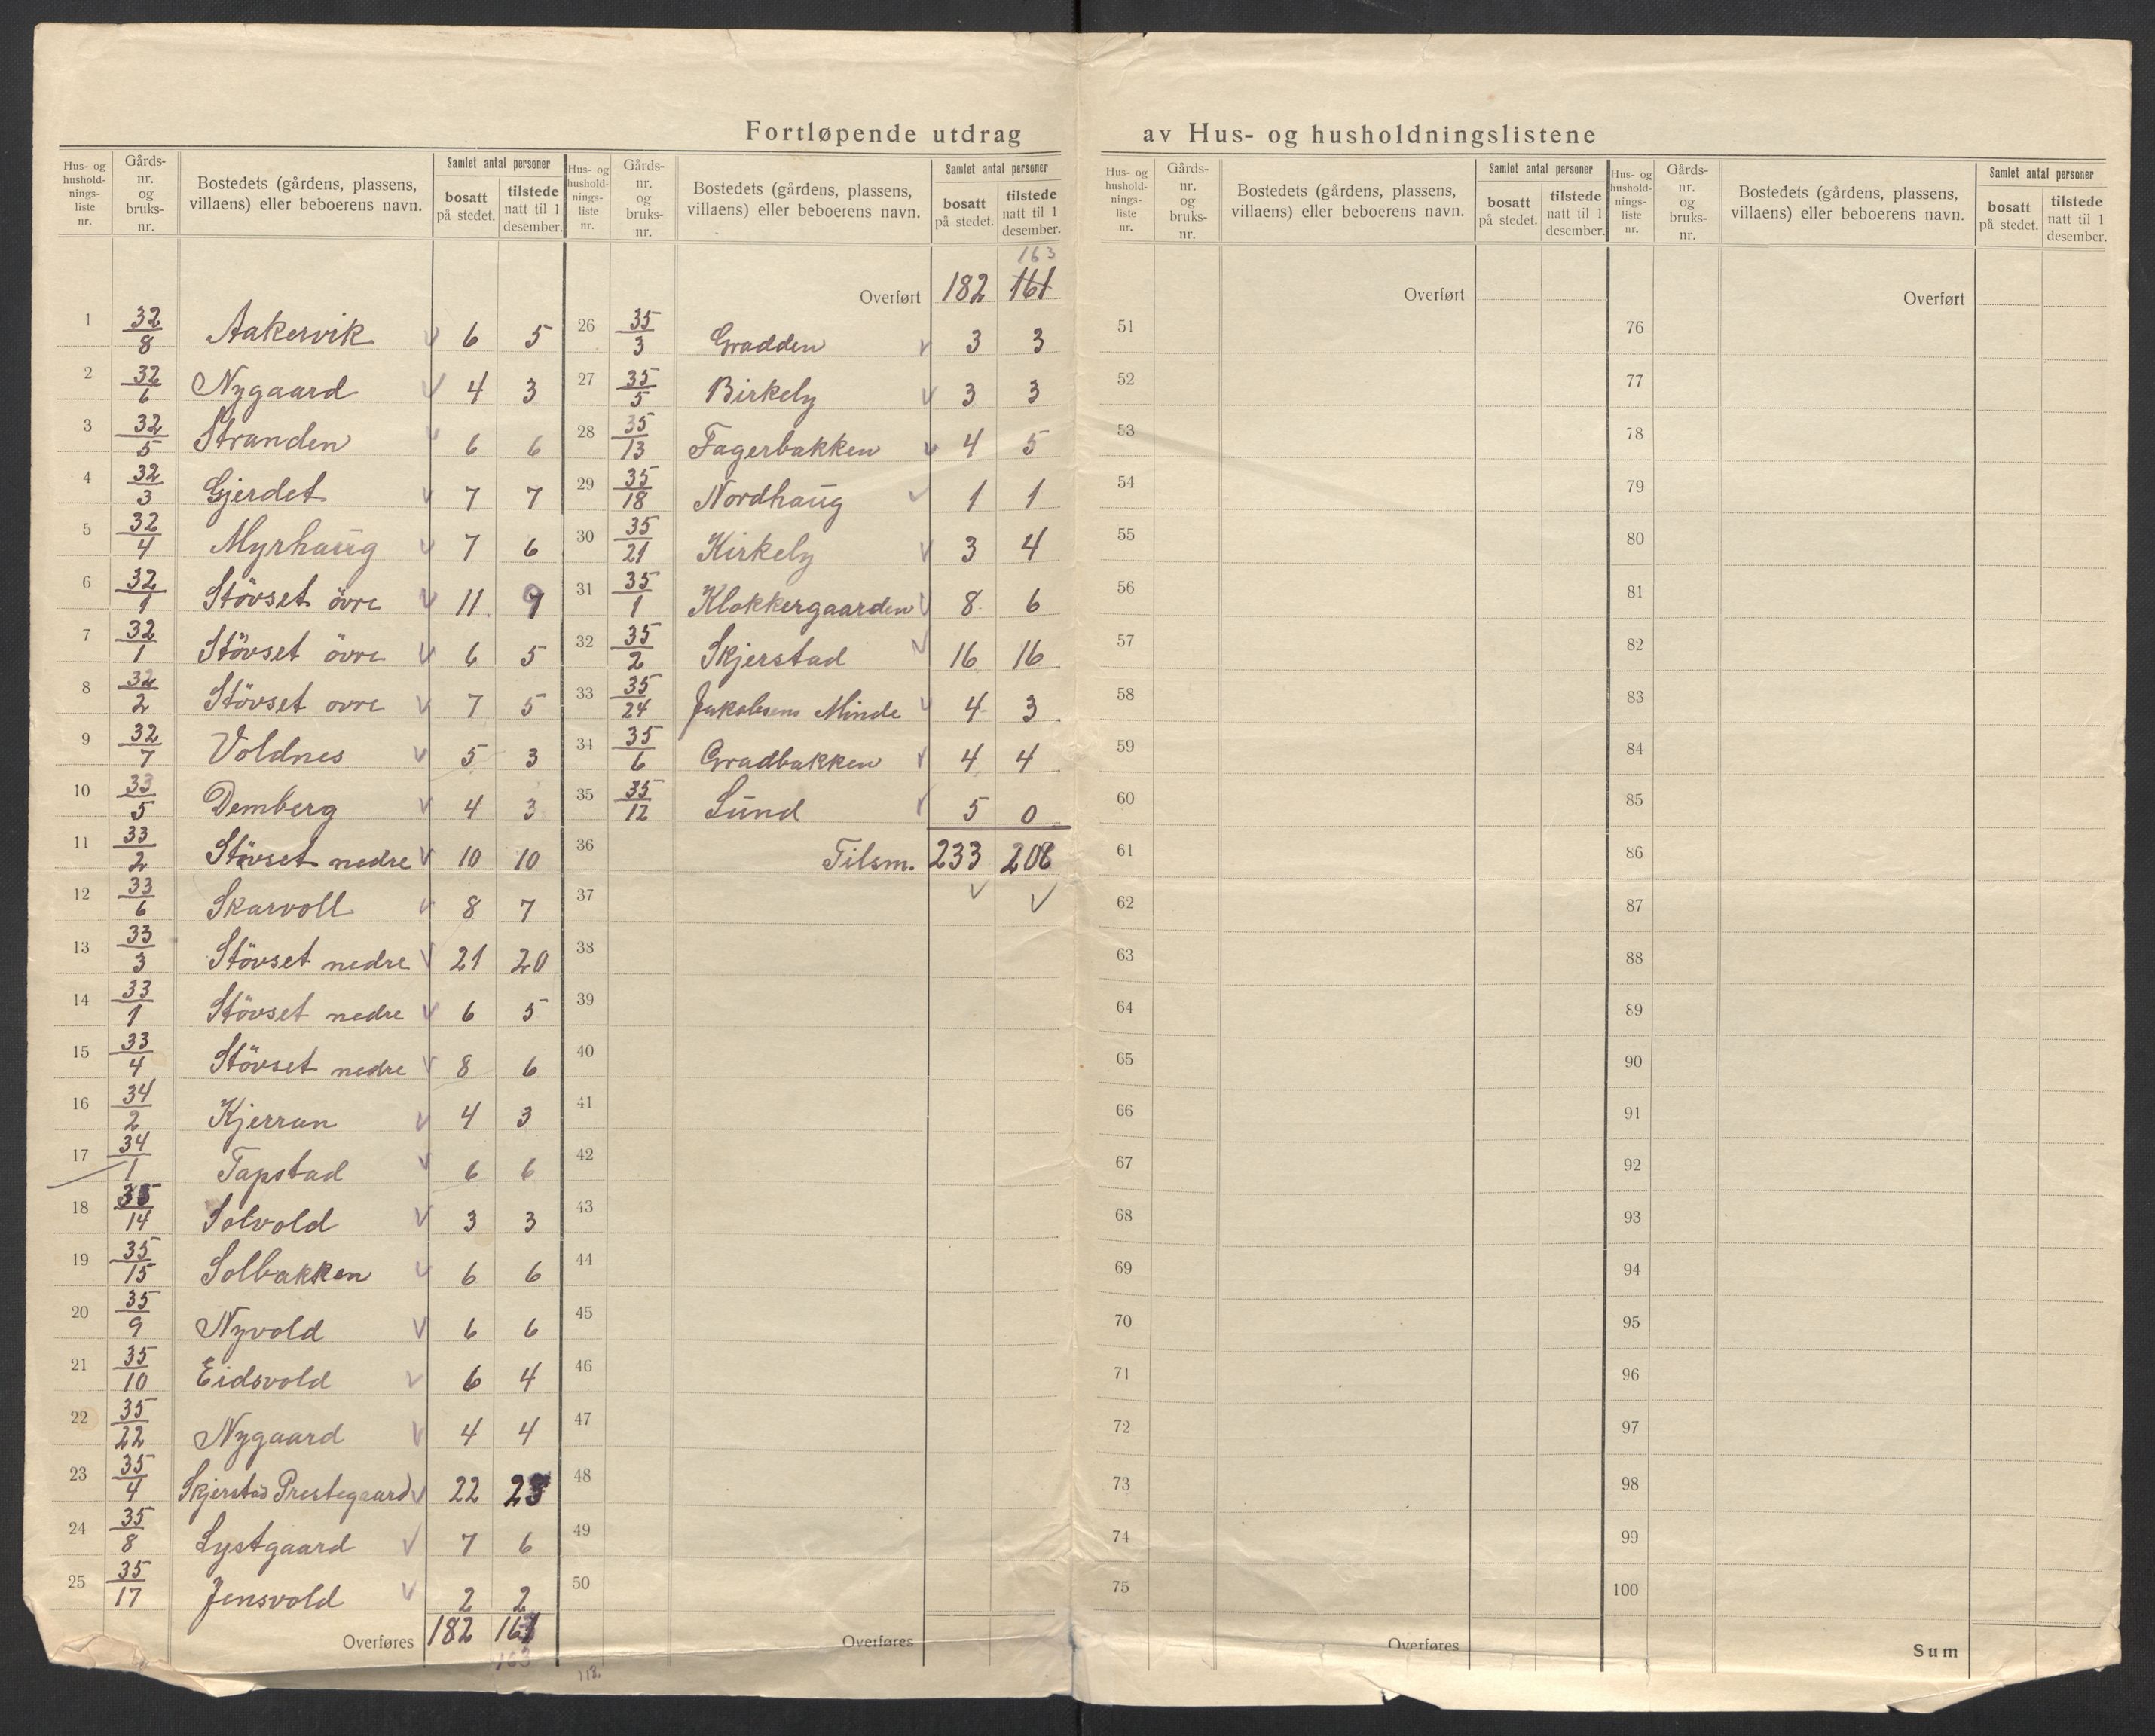 Fortløpende utdrag av Hus- og husholdningslistene
Hus- og hushold- nings- liste nr. | Gårds- nr. og bruks- nr. | Bostedets (gårdens, plassens, villaens) eller beboerens navn. | Samlet antal personer | bosatt på stedet. | tilstede natt til 1 desember.
1 32/8 Aakervik v 6 5
2 32/6 Nygaard v 4 3
3 32/5 Stranden v 6 6
4 32/3 Gjerdet v 7 7
5 32/4 Myrhaug v 7 6
6 32/1 Stövset övre v 11
7 32/1 Stövset övre v 6 5
8 32/2 Stövset ovre v 7 5
9 32/7 Voldnes v 5 3
10 33/5 Demberg v 4 3
11 33/2 Stövset nedre v 10 10
12 33/6 Skarvoll v 8 7
13 33/3 Stövset nedre v 21 20
14 33/1 Stövset nedre v 6 5
15 33/4 Stövset nedre v 8 6
16 34/2 Kjerran v 4 3
17 34/1 Tapstad v 6 6
18 35/14 Solvold v 3 3
19 35/15 Solbakken v 6 6
20 35/9 Nyvold v 6 6
21 35/10 Eidsvold v 6 4
22 35/22 Nygaard v 4 4
23 35/4 Skjerstad Prestegaard v 22 23
24 35/8 Lystgaard v 7 6
25 35/17 Jensvold v 2 2
Overføres 182 161
163
Hus- og hushold- nings- liste nr. | Gårds- nr. og bruks- nr. | Bostedets (gårdens, plassens, villaens) eller beboerens navn. | Samlet antal personer | bosatt på stedet. | tilstede natt til 1 desember.
163
Overført 182 161
26 35/3 Gradden v 3 3
27 35/5 Birkely v 3 3
28 35/13 Fagerbakken v 4 5
29 35/18 Nordhaug v 1 1
30 35/21 Kirkely v 3 4
31 35/1 Klokkergaarden v 8 6
32 35/2 Skjerstad v 16 16
33 35/24 Jakobsens Minde v 4 3
34 35/6 Gradbakken v 4 4
35 35/12 Lund v 5 0
36 Tilsm. 233 208
37 v v
38
39
40
41
42
43
44
45
46
47
48
49
50
Overføres
118.
Hus- og hushold- nings- liste nr. | Gårds- nr. og bruks- nr. | Bostedets (gårdens, plassens, villaens) eller beboerens navn. | Samlet antal personer | bosatt på stedet. | tilstede natt til 1 desember.
Overført
51
52
53
54
55
56
57
58
59
60
61
62
63
64
65
66
67
68
69
70
71
72
73
74
75
Overføres
Hus- og hushold- nings- liste nr. | Gårds- nr. og bruks- nr. | Bostedets (gårdens, plassens, villaens) eller beboerens navn. | Samlet antal personer | bosatt på stedet. | tilstede natt til 1 desember.
Overført
76
77
78
79
80
81
82
83
84
85
86
87
88
89
90
91
92
93
94
95
96
97
98
99
100
Sum